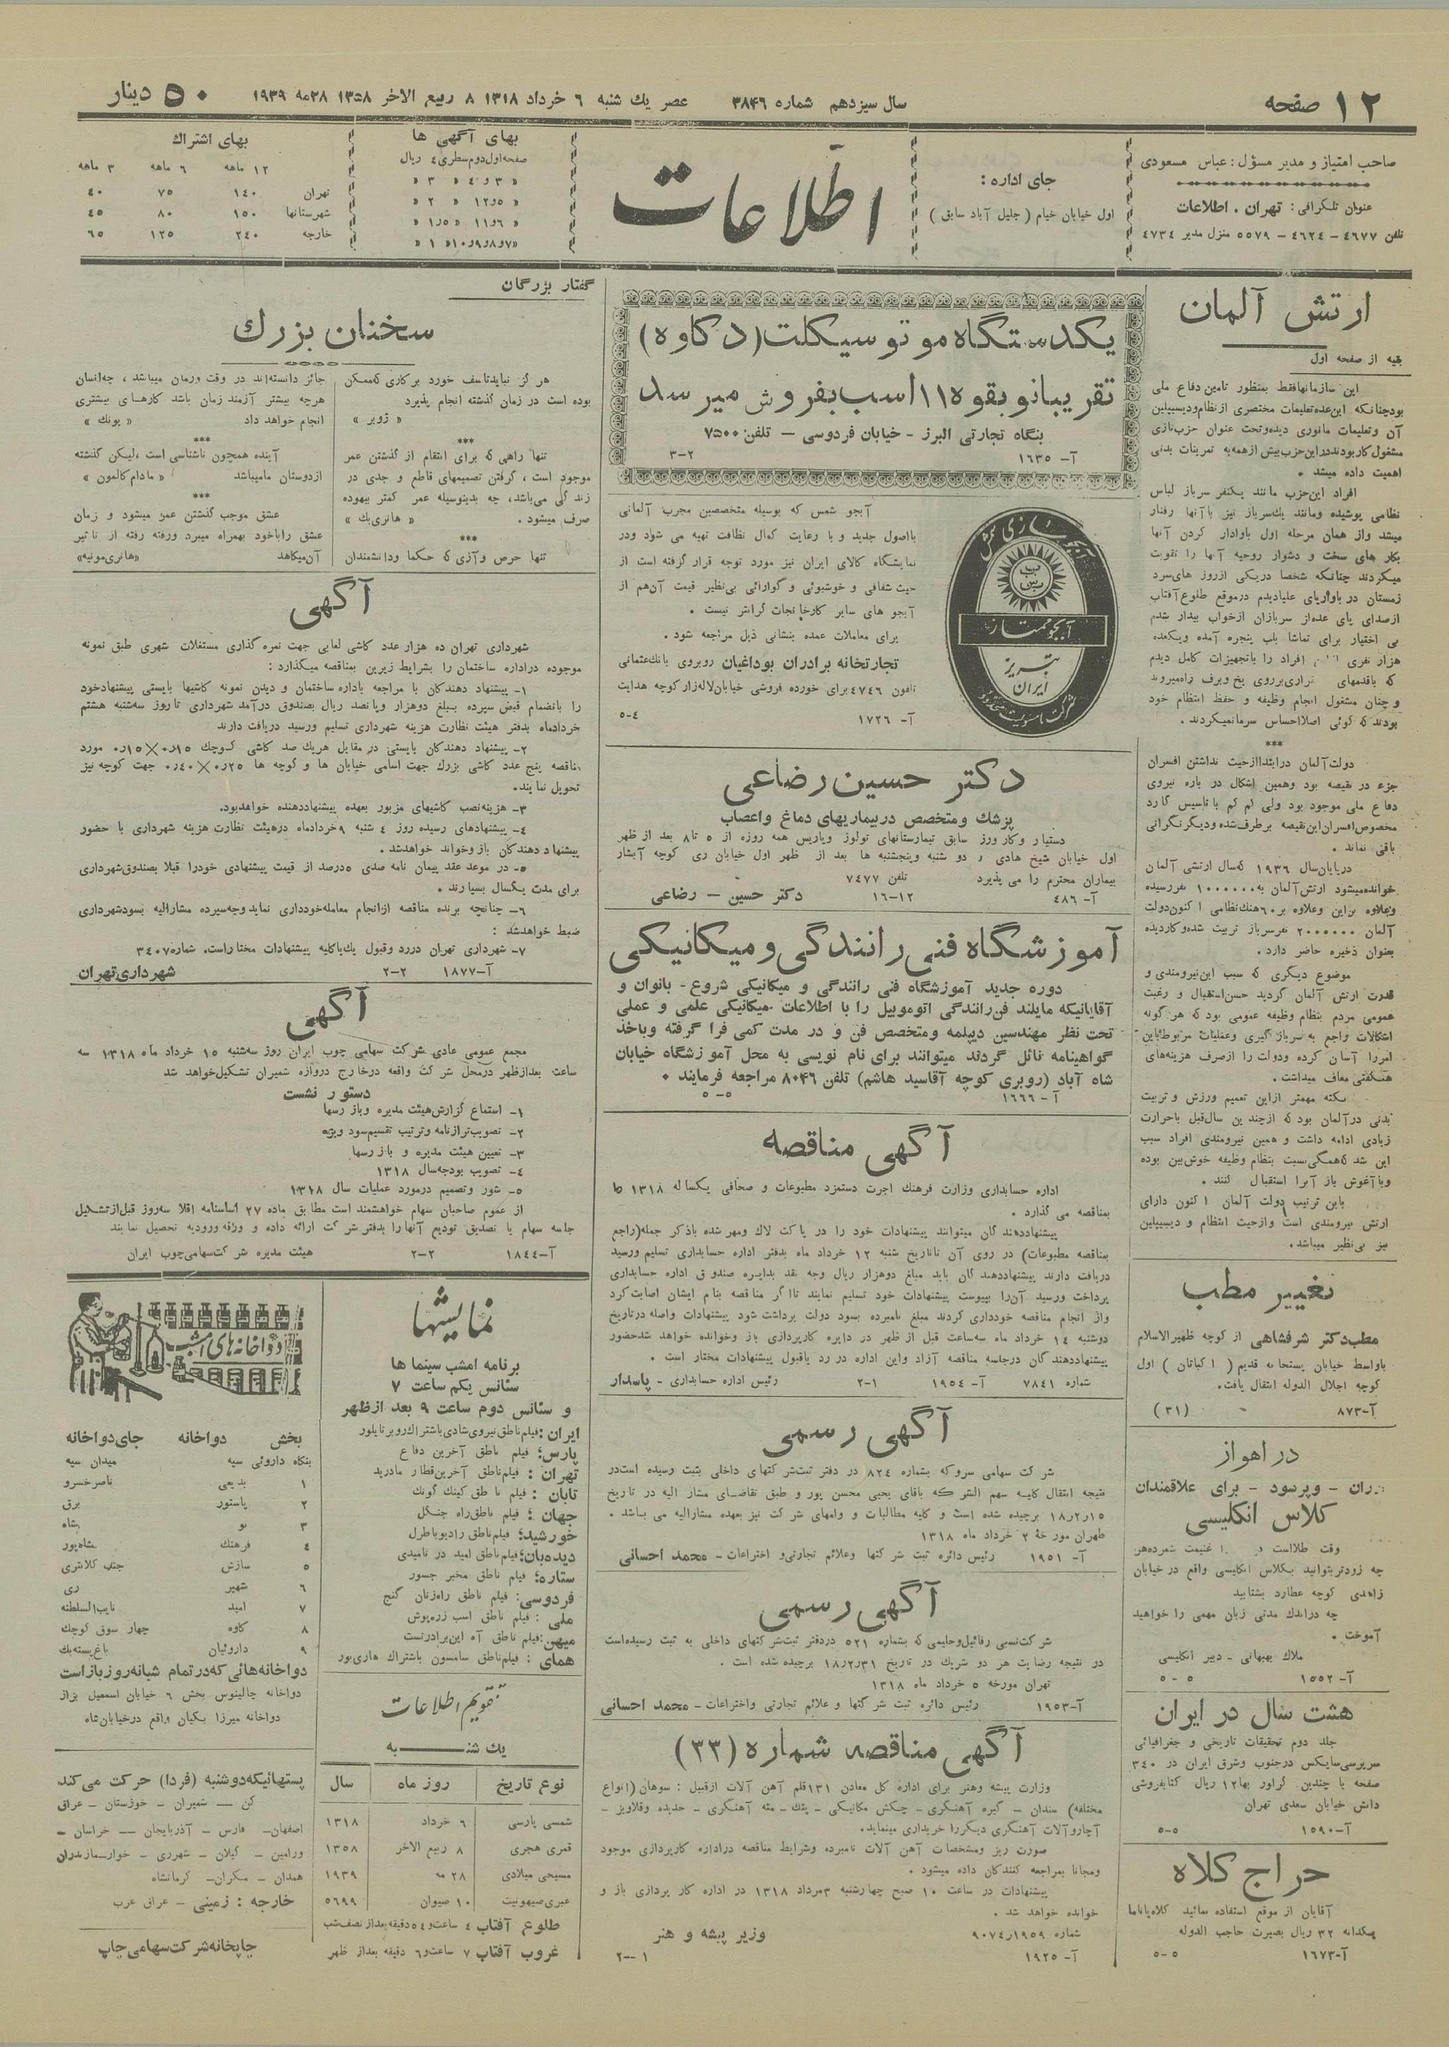 ۱۲ صفحه
سال سیزدهم شماره ۳۸۴۶ عصر یك شنبه ۶ خرداد ۱۳۱۸ ۸ ربیع الاخر ۱۳۵۸ ۲۸مه ۱۹۳۹
۵۰ دینار
صاحب امتیاز و مدیر مسؤل: عباس مسعودی
عنوان تلگرافی: تهران . اطلاعات
تلفن ۴۶۷۷ - ۴۶۲۴ - ۵۵۷۹ منزل مدیر ۴۷۳۴
جای اداره :
اول خیابان خیام ( جلیل آباد سابق )
اطلاعات
بهای آگهی ها
صفحه اول دوم سطری ٤ ریال
« ۳ و ٤ « ۳ «
« ۵ و ۱۲ « ۲ «
« ۶ و ۱۱ « ۱٫۵ «
«۷ و ۸ و ۹ و ۱۰ « ۱ «
بهای اشتراك
۱۲ ماهه ۶ ماهه ۳ ماهه
تهران ۱۴۰ ۷۵ ۴۰
شهرستانها ۱۵۰ ۸۰ ۴۵
خارجه ۲۴۰ ۱۲۵ ۶۵
ارتش آلمان
بقیه از صفحه اول
این سازمانها فقط بمنظور تامین دفاع ملی
بود چنانکه این عده تعلیمات مختصری از نظام و دیسیپلین
آن و تعلیمات مانوری دیده و تحت عنوان حزب نازی
مشغول کار بودند در این حزب بیش از همه به تمرینات بدنی
اهمیت داده میشد .
افراد این حزب مانند یکنفر سرباز لباس
نظامی پوشیده و مانند یك سرباز نیز با آنها رفتار
میشد و از همان مرحله اول با وادار کردن آنها
بکار های سخت و دشوار روحیه آنها را تقویت
میکردند چنانکه شخصا در یکی از روز های سرد
زمستان در باواریای علیا دیدم در موقع طلوع آفتاب
از صدای پای عده از سربازان از خواب بیدار شدم
بی اختیار برای تماشا بلب پنجره آمده و یکعده
هزار نفری افراد را با تجهیزات کامل دیدم
که با قدمهای بر روی یخ و برف راه میروند
و چنان مشغول انجام وظیفه و حفظ انتظام خود
بودند که گوئی اصلا احساس سرما نمیکردند .
***
دولت آلمان در ابتدا از حیث نداشتن افسران
جزء در نقیصه بود و همین اشکال در باره نیروی
دفاع ملی موجود بود ولی کم کم با تاسیس گارد
مخصوص افسران این نقیصه برطرف شده و دیگر نگرانی
باقی نماند .
در پایان سال ۱۹۳۶ که سال ارتشی آلمان
خوانده میشود ارتش آلمان به ۱۰۰۰۰۰۰ نفر رسیده
و علاوه بر این و علاوه بر ۶۰ هنك نظامی اکنون دولت
آلمان ۲۰۰۰۰۰۰ نفر سرباز تربیت شده و کار دیده
بعنوان ذخیره حاضر دارد .
موضوع دیگری که سبب این نیرومندی و
قدرت ارتش آلمان گردید حسن استقبال و رغبت
عمومی مردم بنظام وظیفه عمومی بود که هر گونه
اشکالات راجع به سرباز گیری و عملیات مربوط باین
امر را آسان کرده و دولت را از صرف هزینه های
هنگفتی معاف میداشت .
نکته مهمتر از این تعمیم ورزش و تربیت
بدنی در آلمان بود که از چندین سال قبل با حرارت
زیادی ادامه داشت و همین نیرومندی افراد سبب
این شد که همگی نسبت بنظام وظیفه خوش بین بوده
و با آغوش باز آنرا استقبال کنند .
باین ترتیب دولت آلمان اکنون دارای
ارتش نیرومندی است و از حیث انتظام و دیسیپلین
نیز بی نظیر میباشد .
تغییر مطب
مطب دکتر شرفشاهی از کوچه ظهیرالاسلام
باواسط خیابان پستخانه قدیم ( اکباتان ) اول
کوچه اجلال الدوله انتقال یافت .
آ-۸۷۳ (۳۱)
در اهواز
برای علاقمندان
کلاس انگلیسی
وقت طلااست و غنیمت شمرده هر
چه زودتر بتوانید بکلاس انگلیسی واقع در خیابان
زاهدی کوچه عطارد بشتابید
چه در اندك مدتی زبان مهمی را خواهید
آموخت .
ملاك بهبهانی - دبیر انگلیسی
آ-۱۵۵۲ ۵-۵
هشت سال در ایران
جلد دوم تحقیقات تاریخی و جغرافیائی
سرپرسی سایکس در جنوب و شرق ایران در ۳۴۰
صفحه با چندین گراور بها ۱۲ ریال کتابفروشی
دانش خیابان سعدی تهران
آ-۱۵۹۰ ۵-۵
حراج کلاه
آقایان از موقع استفاده نمائید کلاه پاناما
یکدانه ۳۲ ریال بصیرت حاجب الدوله
آ-۱۶۷۳ ۵-۵
یکدستگاه موتوسیکلت (دکاوه)
تقریبا نو بقوه ۱۱ اسب بفروش میرسد
بنگاه تجارتی البرز - خیابان فردوسی - تلفن ۷۵۰۰
آ- ۱۶۳۵ ۳-۲
آبجو شمس که بوسیله متخصصین مجرب آلمانی
بااصول جدید و با رعایت کمال نظافت تهیه می شود ودر
نمایشگاه کالای ایران نیز مورد توجه قرار گرفته است از
حیث شفافی و خوشبوئی و گوارائی بی نظیر قیمت آن هم از
آبجو های سایر کارخانجات گرانتر نیست .
برای معاملات عمده بنشانی ذیل مراجعه شود .
تجارتخانه برادران بوداغیان روبروی بانك عثمانی
تلفون ۴۷۴۶ برای خورده فروشی خیابان لاله زار کوچه هدایت
آ- ۱۷۲۶ ۵-۴
آبجو سازی شمس
آبجو ممتاز
تبریز
ایران
شرکت با مسئولیت محدود
دکتر حسین رضاعی
پزشك و متخصص در بیماریهای دماغ و اعصاب
دستیار و کارورز سابق تیمارستانهای تولوز و پاریس همه روزه از ۵ تا ۸ بعد از ظهر
اول خیابان شیخ هادی و دو شنبه و پنجشنبه ها بعد از ظهر اول خیابان ری کوچه آبشار
بیماران محترم را می پذیرد تلفن ۷۴۷۷
آ- ۴۸۶ ۱۶-۱۲ دکتر حسین - رضاعی
آموزشگاه فنی رانندگی و میکانیکی
دوره جدید آموزشگاه فنی رانندگی و میکانیکی شروع - بانوان و
آقایانیکه مایلند فن رانندگی اتوموبیل را با اطلاعات میکانیکی علمی و عملی
تحت نظر مهندسین دیپلمه و متخصص فن و در مدت کمی فرا گرفته و باخذ
گواهینامه نائل گردند میتوانند برای نام نویسی به محل آموزشگاه خیابان
شاه آباد (روبری کوچه آقاسید هاشم) تلفن ۸۰۴۶ مراجعه فرمایند .
آ - ۱۶۶۶ ۵-۵
آگهی مناقصه
اداره حسابداری وزارت فرهنك اجرت دستمزد مطبوعات و صحافی یکساله ۱۳۱۸ را
بمناقصه می گذارد .
پیشنهاددهندگان میتوانند پیشنهادات خود را در پاکت لاك و مهر شده با ذکر جمله (راجع
بمناقصه مطبوعات) در روی آن تا تاریخ شنبه ۱۲ خرداد ماه بدفتر اداره حسابداری تسلیم و رسید
دریافت دارند پیشنهاددهندگان باید مبلغ دوهزار ریال وجه نقد بدایره صندوق اداره حسابداری
پرداخت و رسید آن را بپیوست پیشنهادات خود تسلیم نمایند تا اگر مناقصه بنام ایشان اصابت کرد
و از انجام مناقصه خودداری کردند مبلغ نامبرده بسود دولت برداشت شود پیشنهادات واصله در تاریخ
دوشنبه ۱۴ خرداد ماه سه ساعت قبل از ظهر در دایره کارپردازی باز و خوانده خواهد شد حضور
پیشنهاددهندگان در جلسه مناقصه آزاد و این اداره در رد یا قبول پیشنهادات مختار است .
شماره ۷۸۴۱ آ- ۱۹۵۴ ۲-۱ رئیس اداره حسابداری - پاسدار
آگهی رسمی
شرکت سهامی سروکه بشماره ۸۲۴ در دفتر ثبت شرکتهای داخلی ثبت رسیده است در
نتیجه انتقال کلیه سهم الشرکه بآقای یحیی محسن پور و طبق تقاضای مشار الیه در تاریخ
۱۸٫۲٫۱۵ برچیده شده است و کلیه مطالبات و وامهای شرکت نیز بعهده مشارالیه می باشد .
طهران مورخه ۲ خرداد ماه ۱۳۱۸
آ- ۱۹۵۱ رئیس دائره ثبت شرکتها و علائم تجارتی و اختراعات - محمد احسانی
آگهی رسمی
شرکت نسبی رفائیل و حلیمی که بشماره ۵۲۱ در دفتر ثبت شرکتهای داخلی به ثبت رسیده است
در نتیجه رضایت هر دو شریك در تاریخ ۱۸٫۲٫۳۱ برچیده شده است .
تهران مورخه ۵ خرداد ماه ۱۳۱۸
آ-۱۹۵۳ رئیس دائره ثبت شرکتها و علائم تجارتی و اختراعات - محمد احسانی
آگهی مناقصه شماره (۳۳)
وزارت پیشه و هنر برای اداره کل معادن ۱۳۱ قلم آهن آلات از قبیل : سوهان (انواع
مختلفه) سندان - گیره آهنگری - چکش مکانیکی - پتك - مته آهنگری - حدیده و قلاویز -
آچار و آلات آهنگری دیگر را خریداری مینماید.
صورت ریز و مشخصات آهن آلات نامبرده و شرایط مناقصه در اداره کارپردازی موجود
و مجانا بمراجعه کنندگان داده میشود .
پیشنهادات در ساعت ۱۰ صبح چهارشنبه ۳ مرداد ۱۳۱۸ در اداره کار پردازی باز و
خوانده خواهد شد .
شماره ۹۰۷۴٫۱۹۵۹ وزیر پیشه و هنر
آ- ۱۹۲۵ ۲-۱
گفتار بزرگان
سخنان بزرك
هرگز نباید تاسف خورد بر کاری که ممکن
بوده است در زمان گذشته انجام پذیرد
« ژوبر »
***
تنها راهی که برای انتقام از گذشتن عمر
موجود است ، گرفتن تصمیمهای قاطع و جدی در
زندگی می باشد، چه بدینوسیله عمر کمتر بیهوده
صرف میشود . « هانری بك »
***
تنها حرص و آزی که حکما و دانشمندان
جائز دانسته اند در وقت و زمان میباشد ، چه انسان
هرچه بیشتر آزمند زمان باشد کارهای بیشتری
انجام خواهد داد « یونك »
***
آینده همچون ناشناسی است ، لیکن گذشته
از دوستان ما میباشد « مادام کالمون »
***
عشق موجب گذشتن عمر میشود و زمان
عشق را با خود بهمراه میبرد و رفته رفته از تأثیر
آن میکاهد «هانری مونیه»
آگهی
شهرداری تهران ده هزار عدد کاشی لعابی جهت نمره گذاری مستغلات شهری طبق نمونه
موجوده در اداره ساختمان را بشرایط زیرین بمناقصه میگذارد :
۱- پیشنهاد دهندگان با مراجعه باداره ساختمان و دیدن نمونه کاشیها بایستی پیشنهاد خود
را بانضمام قبض سپرده بمبلغ دوهزار و پانصد ریال بصندوق درآمد شهرداری تا روز سه شنبه هشتم
خرداد ماه بدفتر هیئت نظارت هزینه شهرداری تسلیم و رسید دریافت دارند
۲- پیشنهاد دهندگان بایستی در مقابل هر یك صد کاشی کوچك ۰٫۱۵×۰٫۱۵ مورد
مناقصه پنج عدد کاشی بزرك جهت اسامی خیابان ها و کوچه ها ۰٫۲۵×۰٫۴۰ جهت کوچه نیز
تحویل نمایند .
۳- هزینه نصب کاشیهای مزبور بعهده پیشنهاد دهنده خواهد بود.
۴- پیشنهادهای رسیده روز ٤ شنبه ۹ خرداد ماه در هیئت نظارت هزینه شهرداری با حضور
پیشنهاد دهندگان باز و خواند خواهد شد .
۵- در موعد عقد پیمان نامه صدی ۵ درصد از قیمت پیشنهادی خود را قبلا بصندوق شهرداری
برای مدت یکسال بسپارند .
۶- چنانچه برنده مناقصه از انجام معامله خودداری نماید وجه سپرده مشارالیه بسود شهرداری
ضبط خواهد شد :
۷- شهرداری تهران در رد و قبول یك یا کلیه پیشنهادات مختار است. شماره ۳۴۰۷
آ-۱۸۷۷ ۲-۲ شهرداری تهران
آگهی
مجمع عمومی عادی شرکت سهامی چوب ایران روز سه شنبه ۱۵ خرداد ماه ۱۳۱۸ سه
ساعت بعد از ظهر در محل شرکت واقعه در خارج دروازه شمیران تشکیل خواهد شد
دستور نشست
۱- استماع گزارش هیئت مدیره و بازرسها
۲- تصویب ترازنامه و ترتیب تقسیم سود ویژه
۳- تعیین هیئت مدیره و بازرسها
۴- تصویب بودجه سال ۱۳۱۸
۵- شور و تصمیم در مورد عملیات سال ۱۳۱۸
از عموم صاحبان سهام خواهشمند است مطابق ماده ۲۷ اساسنامه اقلا سه روز قبل از تشکیل
جلسه سهام یا تصدیق تودیع آنها را بدفتر شرکت ارائه داده و ورقه ورودیه تحصیل نمایند
آ-۱۸۴۴ ۲-۲ هیئت مدیره شرکت سهامی چوب ایران
نمایشها
برنامه امشب سینما ها
سئانس یکم ساعت ۷
و سئانس دوم ساعت ۹ بعد از ظهر
ایران : فیلم ناطق نیروی شادی باشتراك روبر تایلور
پارس : فیلم ناطق آخرین دفاع
تهران : فیلم ناطق آخرین قطار مادرید
تابان : فیلم ناطق کینك کونك
جهان : فیلم ناطق راه جنگل
خورشید : فیلم ناطق رادیو باطرل
دیده بان : فیلم ناطق امید در نامیدی
ستاره : فیلم ناطق مخبر جسور
فردوسی : فیلم ناطق راهزنان گنج
ملی : فیلم ناطق اسب زره پوش
میهن : فیلم ناطق آه این برادرتست
همای : فیلم ناطق سامسون باشتراك هاری بور
تقویم اطلاعات
یك شنبه
نوع تاریخ روز ماه سال
شمسی پارسی ۶ خرداد ۱۳۱۸
قمری هجری ۸ ربیع الاخر ۱۳۵۸
مسیحی میلادی ۲۸ مه ۱۹۳۹
عبری صیهونیت ۱۰ صیوان ۵۶۹۹
طلوع آفتاب ٤ ساعت و ۵٤ دقیقه بعد از نصف شب
غروب آفتاب ۷ ساعت و ۶ دقیقه بعد از ظهر
دواخانه های امشب
بخش دواخانه جای دواخانه
بنگاه داروئی سپه میدان سپه
۱ بدیعی ناصرخسرو
۲ پاستور برق
۳ نو شاه
٤ فرهنك شاهپور
۵ سازش جنب کلانتری
۶ شهیر ری
۷ امید نایب السلطنه
۸ کاوه چهار سوق کوچك
۹ داروئیان باغ پسته بك
دواخانه هائی که در تمام شبانه روز باز است
دواخانه جالینوس بخش ۶ خیابان اسمعیل بزاز
دواخانه میرزا یکیان واقع در خیابان شاه
پستهائیکه دوشنبه (فردا) حرکت می کند
کن - شمیران - خوزستان - عراق
اصفهان - فارس - آذربایجان - خراسان -
ورامین - گیلان - شهرری - خوار - مازندران
همدان - مکران - کرمانشاه
خارجه : زمینی - عراق عرب
چاپخانه شرکت سهامی چاپ